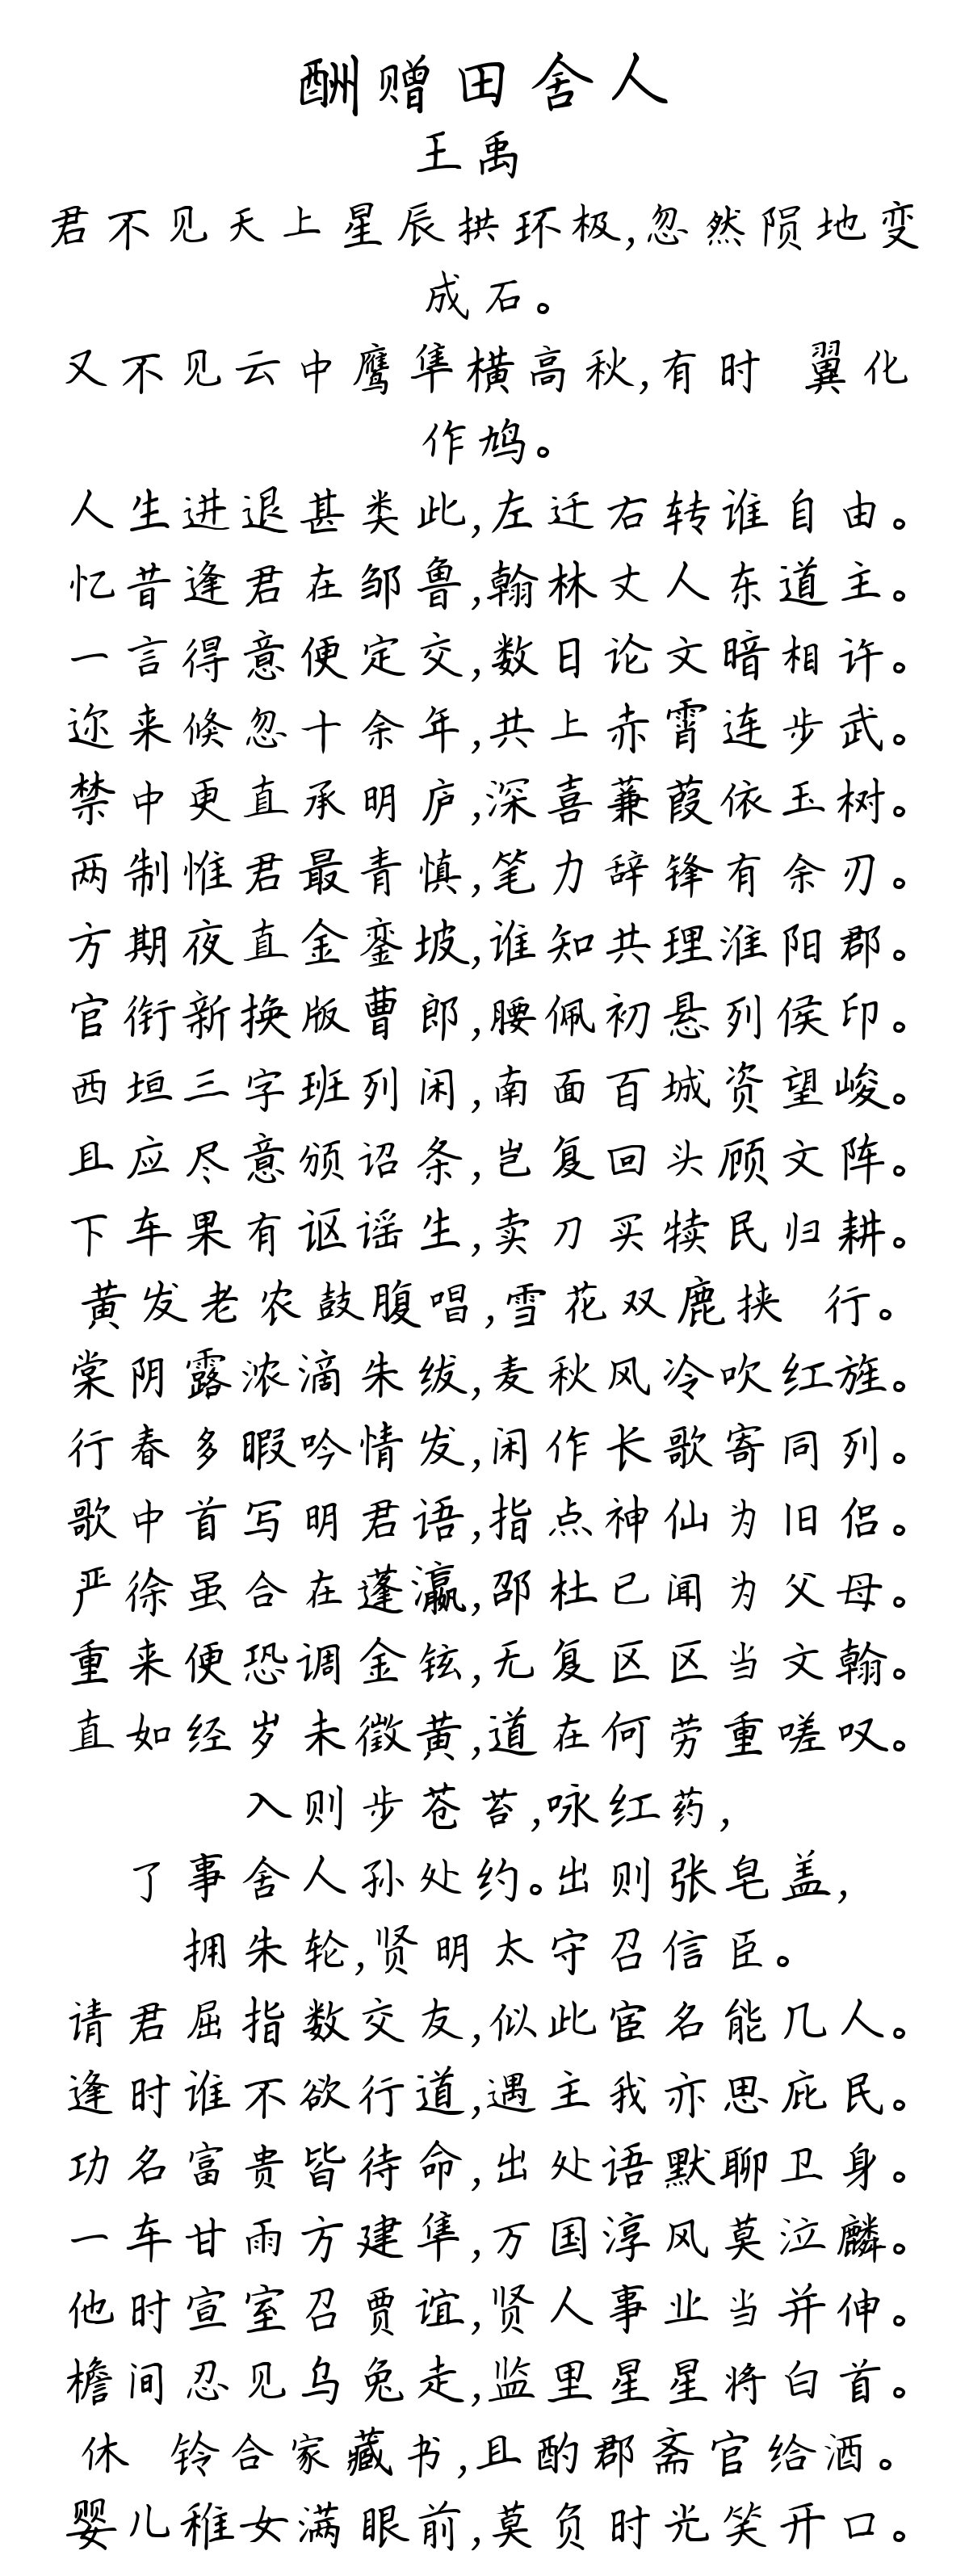 酬赠田舍人
王禹
君不见天上星辰拱环极,忽然陨地变
成石。
又不见云中鹰隼横高秋,有时 翼化
作鸠。
人生进退甚类此,左迁右转谁自由。
忆昔逢君在邹鲁,翰林丈人东道主。
一言得意便定交,数日论文暗相许。
迩来倏忽十余年,共上赤霄连步武。
禁中更直承明庐,深喜蒹葭依玉树。
两制惟君最青慎,笔力辞锋有余刃。
方期夜直金銮坡,谁知共理淮阳郡。
官衔新换版曹郎,腰佩初悬列侯印。
西垣三字班列闲,南面百城资望峻。
且应尽意颁诏条,岂复回头顾文阵。
下车果有讴谣生,卖刀买犊民归耕。
黄发老农鼓腹唱,雪花双鹿挟 行。
棠阴露浓滴朱绂,麦秋风冷吹红旌。
行春多暇吟情发,闲作长歌寄同列。
歌中首写明君语,指点神仙为旧侣。
严徐虽合在蓬瀛,邵杜已闻为父母。
重来便恐调金铉,无复区区当文翰。
直如经岁未徵黄,道在何劳重嗟叹。
入则步苍苔,咏红药,
了事舍人孙处约。出则张皂盖,
拥朱轮,贤明太守召信臣。
请君屈指数交友,似此宦名能几人。
逢时谁不欲行道,遇主我亦思庇民。
功名富贵皆待命,出处语默聊卫身。
一车甘雨方建隼,万国淳风莫泣麟。
他时宣室召贾谊,贤人事业当并伸。
檐间忍见乌兔走,监里星星将白首。
休 铃合家藏书,且酌郡斋官给酒。
婴儿稚女满眼前,莫负时光笑开口。